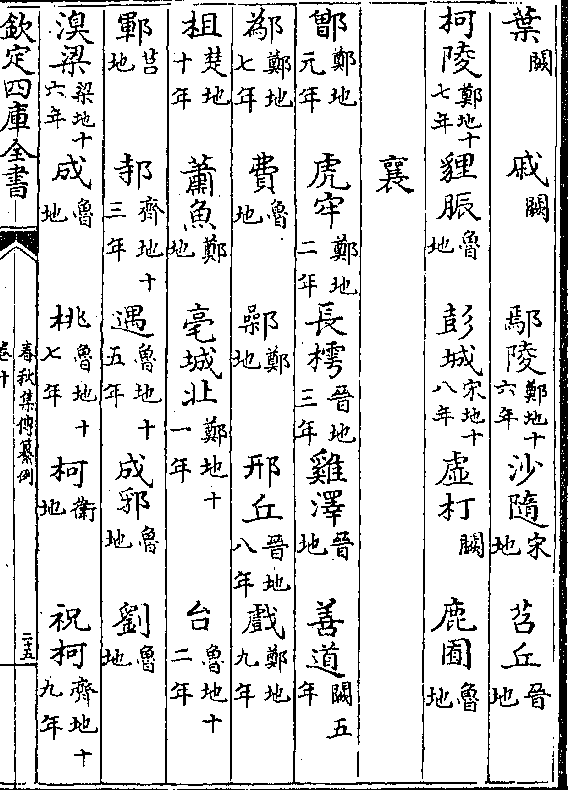 葉闕 戚闕 鄢陵鄭地十六年 沙隨宋地 苕丘晉地
柯陵鄭地十七年 貍脤魯地 彭城宋地十八年 虛朾闕 鹿囿魯地
襄
鄫鄭地元年 虎牢鄭地二年 長樗晉地三年 雞澤晉地 善道闕五年
鄬鄭地七年 費魯地 鄵鄭地 邢丘晉地八年 戲鄭地九年
柤楚地十年 蕭魚鄭地 亳城北鄭地十一年 台魯地十二年
鄆莒地 邿齊地十三年 遇魯地十五年 成郛魯地 劉魯地
湨梁梁地十六年 成魯地 桃魯地十七年 柯衛地 祝柯齊地十九年
欽定四庫全書
春秋集傳纂例
卷十
二十五